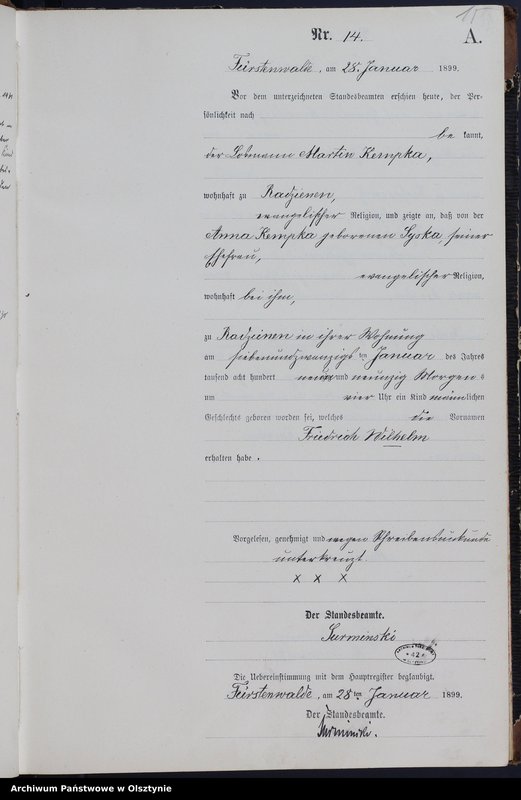 15
Nr. 14.
A.
Fürstenwalde, am 28. Januar 1899.
Vor dem unterzeichneten Standesbeamten erschien heute, der Per-
sönlichkeit nach
be kannt,
der Losmann Martin Kempka,
wohnhaft zu Radzienen,
evangelischer Religion, und zeigte an, daß von der
Anna Kempka geborenen Syska, seiner
Ehefrau,
evangelischer Religion,
wohnhaft bei ihm,
zu Radzienen in ihrer Wohnung
am siebenundzwanzigsten Januar des Jahres
tausend acht hundert neun und neunzig Morgens
um vier Uhr ein Kind männlichen
Geschlechts geboren worden sei, welches die Vornamen
Friedrich Wilhelm
erhalten habe.
Vorgelesen, genehmigt und wegen Schreibensunkunde
unterkreuzt.
x x x
Der Standesbeamte.
Surminski
Die Uebereinstimmung mit dem Hauptregister beglaubigt.
Fürstenwalde, am 28ten Januar 1899.
Der Standesbeamte.
Surminski.
Archiwum Państwowe w Olsztynie